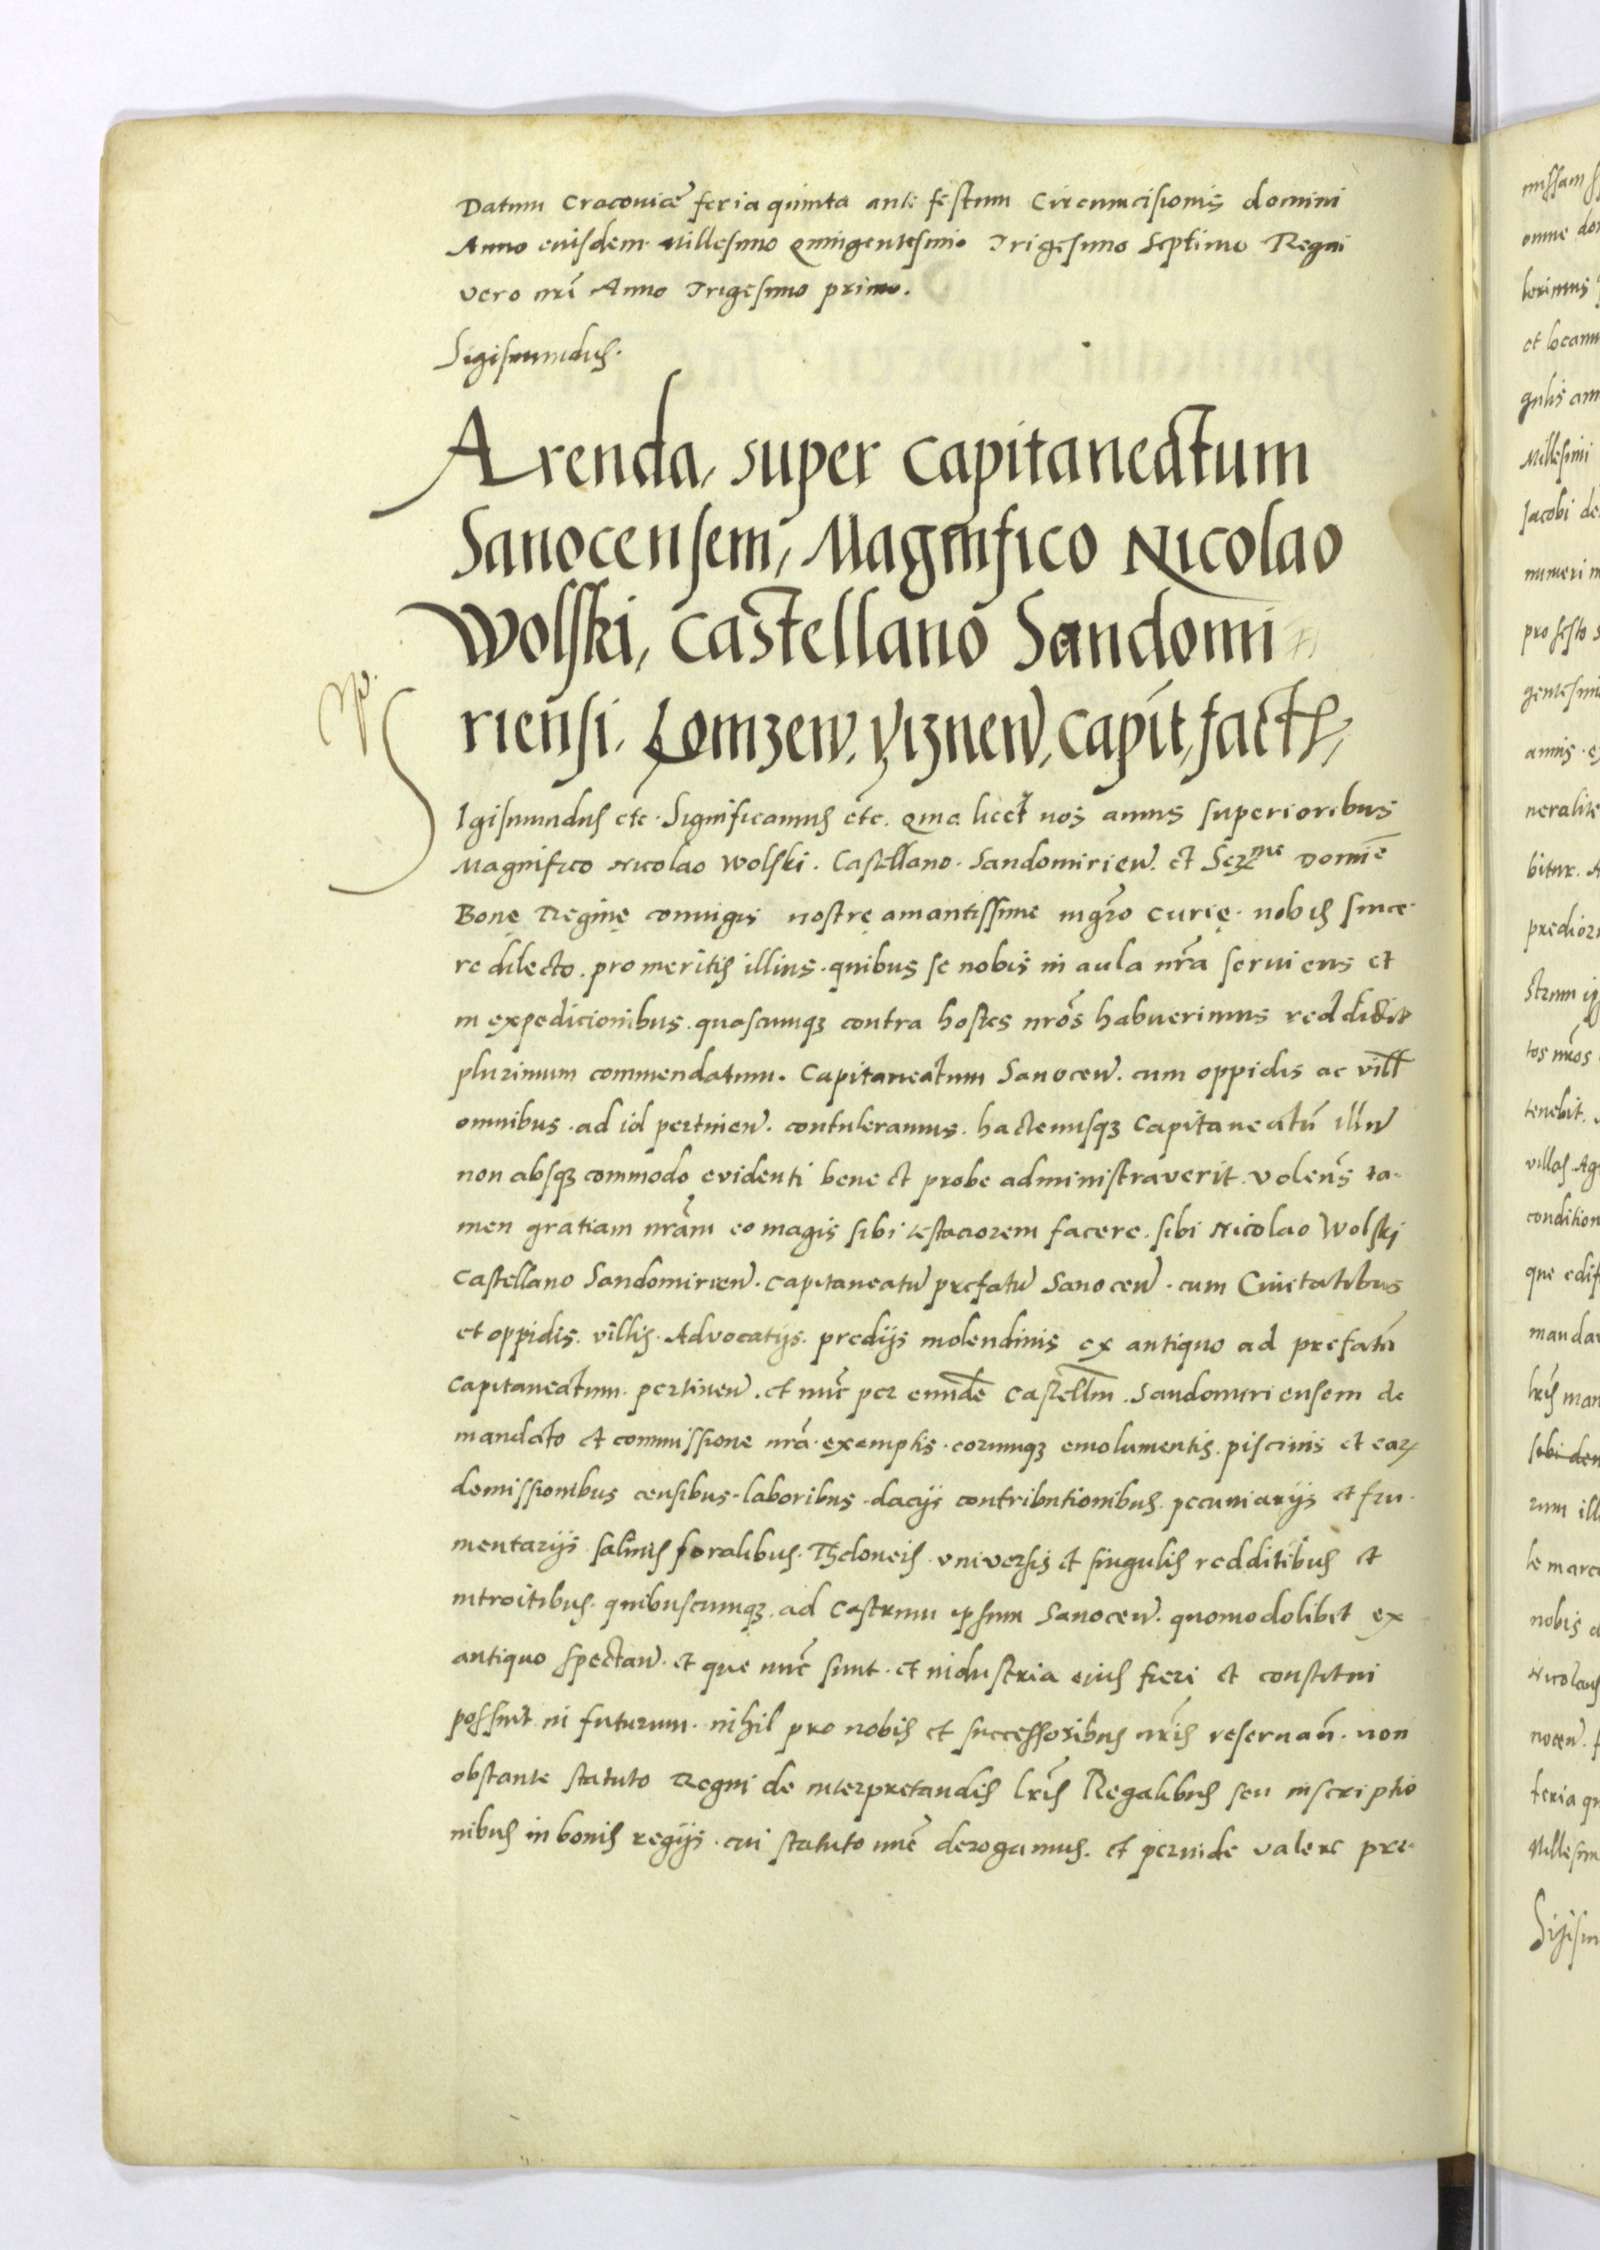 Datum Cracoviæ feria quinta ante festum Circumcisionis domini
Anno eiusdem Millesimo Quingentesimo Trigesimo Septimo Regni
vero nrĩ Anno Trigesimo primo.
Sigismundus.
Arenda, super Capitaneatum
Sanocensem, Magnifico Nicolao
Wolski, Castellano Sandomi
rieñsi. Łomzeñ. Vizneñ, Capit, fact,
Igismundus etc. Significamus etc. Qma licet nos annis superioribus
Magnifico Nicolao Wolski. Castellano. Sandomirieñ. et Serme Domiẽ
Bonę Reginę coniugis nostrę amantissime mgrõ Curię. nobis since
re dilecto. pro meritis illius. quibus se nobis in aula nrã serviens et
in expedicionibus. quascumqʒ contra hostes nrõs habuerimus reddidit
plurimum commendatum. Capitaneatum Sanoceñ. cum oppidis ac vill
omnibus. ad id pertineñ. contuleramus. hactenusqʒ Capitaneatũ illũ
non absqʒ commodo evidenti bene et probe administraverit. volens ta-
men gratiam nrãm eo magis sibi testaciorem facere. sibi Nicolao Wolskj
Castellano Sandomirieñ. Capitaneatũ prefatũ Sanoceñ. cum Civitatibus
et oppidis. villis. Advocatijs. predijs molendinis ex antiquo ad prefatũ
Capitaneatum. pertineñ. et nũc per eundẽ Castellm̃. Sandomiriensem de
mandato et commissione nrã. exemptis. eorumqʒ emolumentis. piscinis et earꝝ
demissionibus censibus. laboribus. dacijs contributionibus. pecuniarijs et fru-
mentarijs. salinis foralibus. Theloneis. vniversis et singulis redditibus et
introitibus. quibuscumqʒ. ad Castrum ipsum Sanoceñ. quomodolibet ex
antiquo spectañ. et que nũc sunt. et industria ejus fieri et constitui
possint in futurum. nihil pro nobis et successoribus nrĩs reservañ. non
obstante statuto Regni de interpretandis lrĩs Regalibus seu inscriptio
nibus in bonis regijs. cui statuto nũc derogamus. et perinde valere pre-